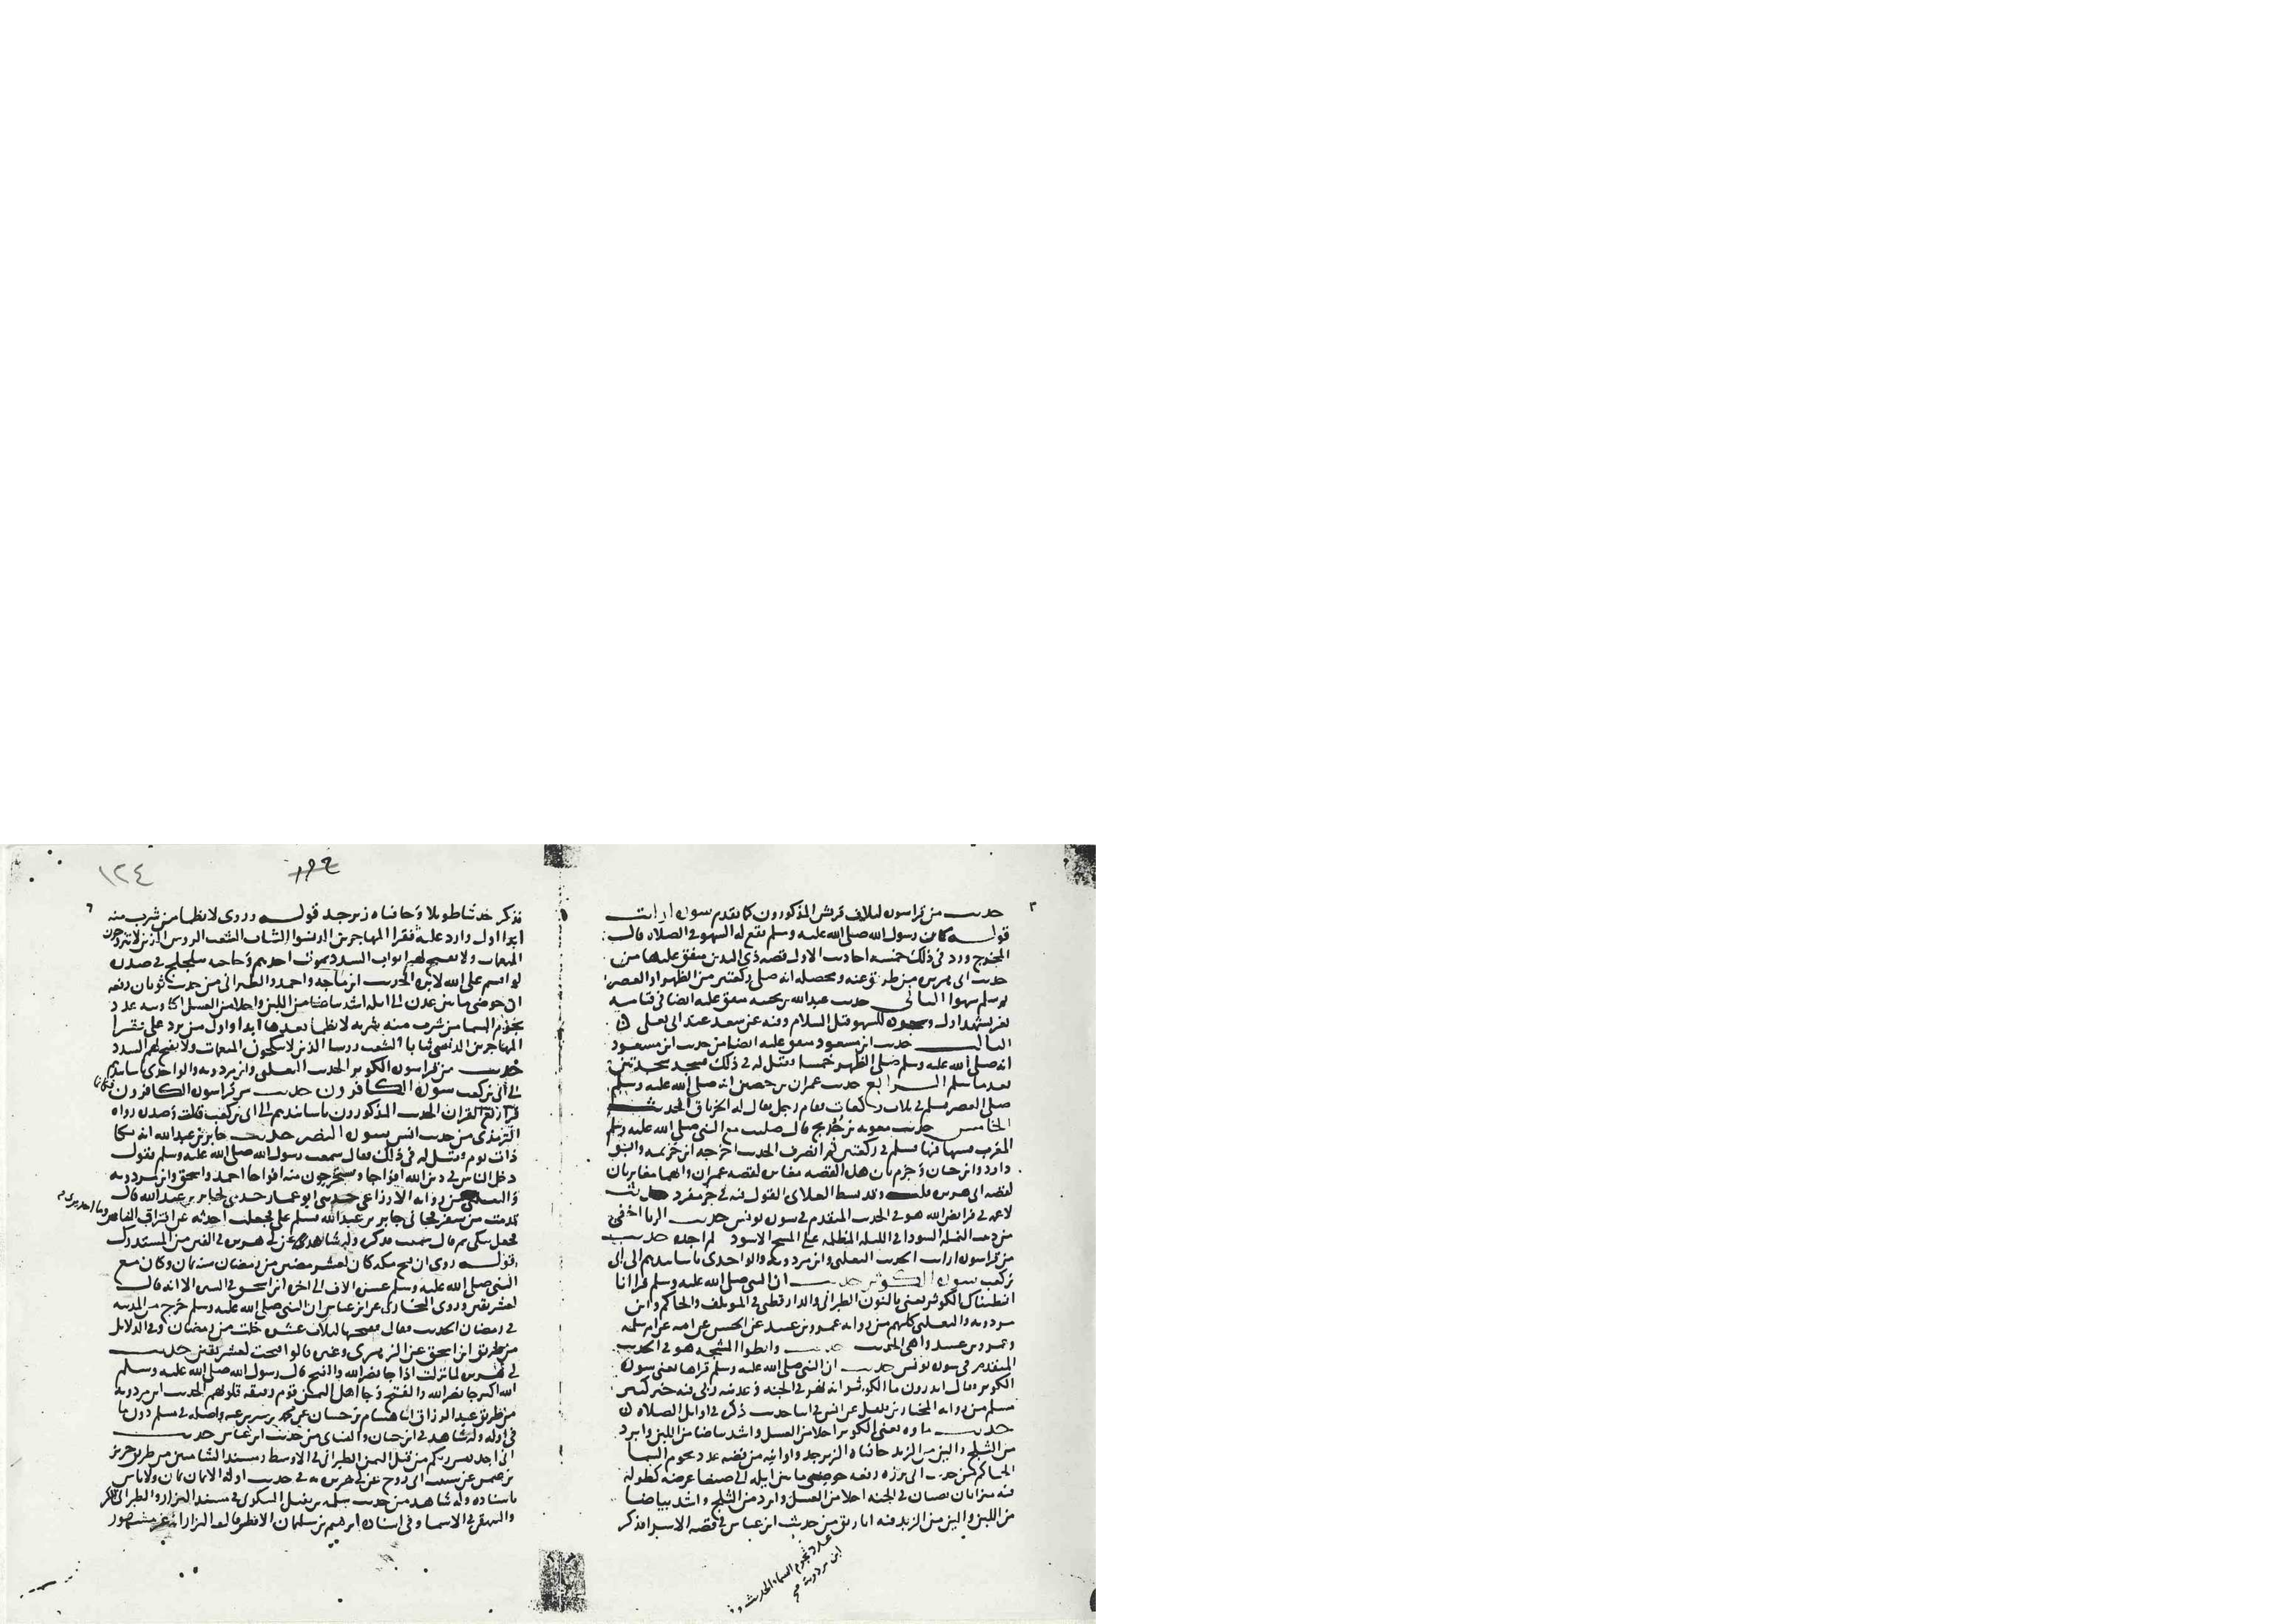 حديث من قرا سورة لايلاف قريش المذكورون كما تقدم سورة ارايت
قوله كان رسول الله صلى الله عليه وسلم يقع له السهو في الصلاه قال
المخرج ورد في ذلك خمسة احاديث الاول قصة ذي اليدين متفق عليها من
حديث ابي هريرة من طرق عنه ومحصله انه صلى ركعتين من الظهر او العصر
ثم سلم سهوا الثاني حديث عبد الله بن بحينه متفق عليه ايضا في قيامه
تشهد اول للسهو قبل السلام وفيه عن سعد عند ابي يعلى
الثالث حديث ابن مسعود متفق عليه ايضا من حديث ابن مسعود
انه صلى الله عليه وسلم صلى الظهر خمسا فقيل له في ذلك فسجد سجدتين
بعد ما سلم الرابع حديث عمران بن حصين انه صلى الله عليه وسلم
صلى العصر فسلم في ثلاث ركعات فقام رجل يقال له الخرباق الحديث
الخامس حديث معويه بن خديج قال صليت مع النبي صلى الله عليه وسلم
المغرب فسها فيها فسلم في ركعتين ثم انصرف الحديث اخرجه ابن خزيمه وابو
داود وابن حبان وجزم بان هذه القصه مغايره لقصه عمران وانهما مغايرتان
لقصه ابي هريره قلت وقد بسط العلاي القول فيه في جزء مفرد حديث
لا غمه في فرايض الله هو في الحديث المتقدم في سورة يونس حديث الريا اخفى
من دبيب النمله السودا في الليله المظلمه على المسح الاسود لم اجده حديث
من قرا سورة ارايت الحديث الثعلبي وابن مردويه والواحدي باسانيدهم الى ابي
بن كعب سورة الكوثر حديث ان النبي صلى الله عليه وسلم قرا انا
انطيناك الكوثر يعني بالنون الطبراني والدارقطني في المؤتلف والحاكم وابن
مردويه والثعلبي كلهم من رواية عمرو بن عبيد عن الحسن عن امه عن ام سلمه
وعمرو بن عبيد واهي الحديث حديث وانطوا الثبجه هو في الحديث
المتقدم في سورة يونس حديث ان النبي صلى الله عليه وسلم قراها يعني سورة
الكوثر وقال اتدرون ما الكوثر انه نهر في الجنه وعدنيه ربي فيه خير كثير
مسلم من رواية المختار بن فلفل عن انس في اثنا حديث ذكره في اوايل الصلاه
حديث ماوه يعني الكوثر احلا من العسل واشد بياضا من اللبن وابرد
من الثلج والين من الزبد حافتاه الزبرجد واوانيه من فضه عدد نجوم السما
الحاكم من حديث ابي برزه رفعه حوضي ما بين ايله الى صنعا عرضه كطوله
فيه ميزابان يصبان في الجنه احلا من العسل وابرد من الثلج واشد بياضا
من اللبن والين من الزبد فيه اباريق من حديث ابن عباس في قصه الاسرا فذكر
عدد نجوم السماء الحديث
ابن مردويه
١٢٤
فذكر حديثا طويلا وحافتاه زبرجد قوله وروي لا يظما من شرب منه
ابدا اول وارد عليه فقرا المهاجرين الدنسوا الثياب الشعث الروس الذين لا يزوجون
المنعمات ولا تفتح لهم ابواب السدد يموت احدهم وحاجته تتلجلج في صدره
لو اقسم على الله لابره الحديث ابن ماجه واحمد والطبراني من حديث ثوبان رفعه
ان حوضي ما بين عدن الى ايله اشد بياضا من اللبن واحلا من العسل اكاويبه عدد
نجوم السما من شرب منه شربه لا يظما بعدها ابدا واول من يرد علي فقرا
المهاجرين الدنسي ثيابا الشعث روسا الذين لا ينكحون المنعمات ولا تفتح لهم السدد
حديث من قرا سورة الكوثر الحديث الثعلبي وابن مردويه والواحدي باسانيدهم
الى ابي بن كعب سورة الكافرون حديث من قرا سورة الكافرون فكانما
قرا ربع القران الحديث المذكورون باسانيدهم الى ابي بن كعب قلت وصدره رواه
الترمذي من حديث انس سورة النصر حديث جابر بن عبد الله انه بكا
ذات يوم فقيل له في ذلك فقال سمعت رسول الله صلى الله عليه وسلم يقول
دخل الناس في دين الله افواجا وسيخرجون منه افواجا احمد واسحق وابن مردويه
والثعلبي من رواية الاوزاعي حدثني ابو عمار حدثني جار لجابر بن عبد الله قال
قدمت من سفر فجاني جابر بن عبد الله فسلم علي فجعلت احدثه عن افتراق الناس وما احدثوه
فجعل يبكي ثم قال سمعت فذكره وله شاهد عن ابي هريره في الفتن من المستدرك
قوله روي ان فتح مكه كان لعشر مضين من رمضان سنه ثمان وكان مع
النبي صلى الله عليه وسلم عشره الاف الى اخره ابن اسحق في السيره الا انه قال
لعشر بقين وروى البخاري عن ابن عباس ان النبي صلى الله عليه وسلم خرج من المدينه
في رمضان الحديث فقال ففتحها لثلاث عشره خلت من رمضان وفي الدلايل
من طريق ابن اسحق عن الزهري وغيره قالوا فتحت لعشر بقين حديث
ابي هريره لما نزلت اذا جا نصر الله والفتح قال رسول الله صلى الله عليه وسلم
الله اكبر جا نصر الله والفتح وجا اهل اليمن قوم رقيقه قلوبهم الحديث ابن مردويه
من طريق عبد الرزاق انا هشام بن حسان عن محمد بن سيرين عنه واصله في مسلم دون ما
في اوله وله شاهد في ابن حبان والنساي من حديث ابن عباس حديث
اني اجد نفس ربكم من قبل اليمن الطبراني في الاوسط ومسند الشاميين من طريق حريز
بن عثمن عن شبيب ابي روح عن ابي هريره به في حديث اوله الايمان يمان ولا باس
باسناده وله شاهد من حديث سلمه بن نفيل السكوني في مسند البزار والطبراني الكبير
والبيهقي في الاسما وفي اسناده ابرهيم بن سليمان الافطس قال البزار انه غير مشهور